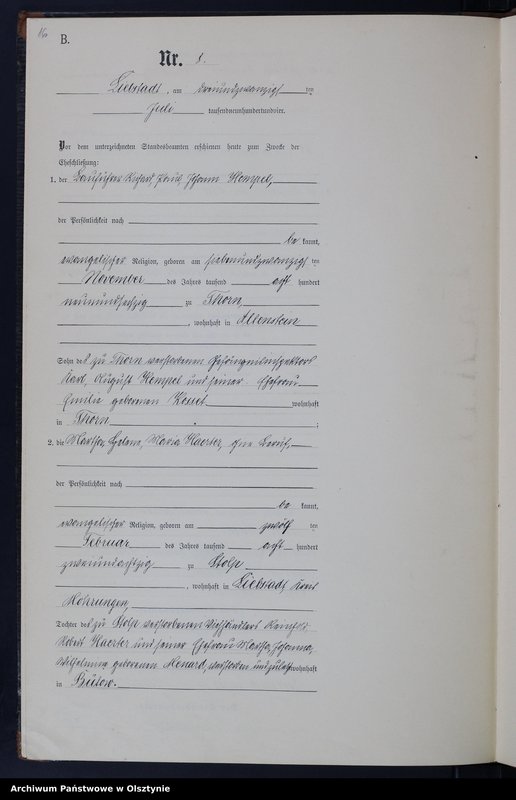 B.
Nr. 8.
Liebstadt, am dreiundzwanzigsten
Juli tausendneunhundertundvier.
Vor dem unterzeichneten Standesbeamten erschienen heute zum Zwecke der
Eheschließung:
1. der Paul, Johann Hempel,
der Persönlichkeit nach
be kannt,
evangelischer Religion, geboren am siebenundzwanzigsten
November des Jahres tausend acht hundert
neunundsechzig zu Thorn,
, wohnhaft in Allenstein
Sohn des zu Thorn verstorbenen Gefängnisinspektors
Karl, August Hempel und seiner Ehefrau
Emilie geborenen Kossel wohnhaft
in Thorn ;
2. die Martha, Helene, Maria Haerter, ohne Beruf,
der Persönlichkeit nach
be kannt,
evangelischer Religion, geboren am zwölf ten
Februar des Jahres tausend acht hundert
zweiundachtzig zu Stolp
, wohnhaft in Liebstadt, Kreis
Mohrungen,
Tochter des zu Stolp verstorbenen Viehhändlers
Robert Haerter und seiner Ehefrau Martha, Johanna,
Wilhelmine geborenen Monard, verstorben und zuletzt wohnhaft
in Bütow.
Archiwum Państwowe w Olsztynie